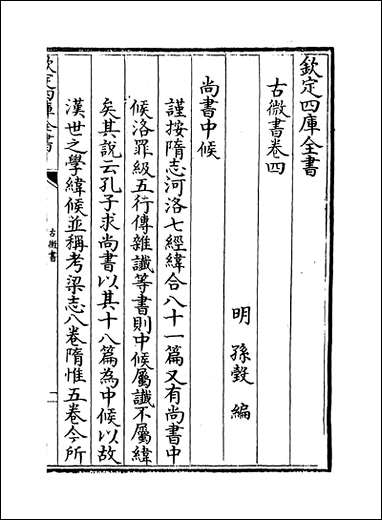 欽定四庫全書
古微書卷四
明 孫瑴 編
尚書中候
謹按隋志河洛七經緯合八十一篇又有尚書中
候洛罪級五行傳雜讖等書則中候屬讖不屬緯
矣其說云孔子求尚書以其十八篇為中候以故
漢世之學緯候並稱考梁志八卷隋惟五卷今所
欽定四庫全書
古微書